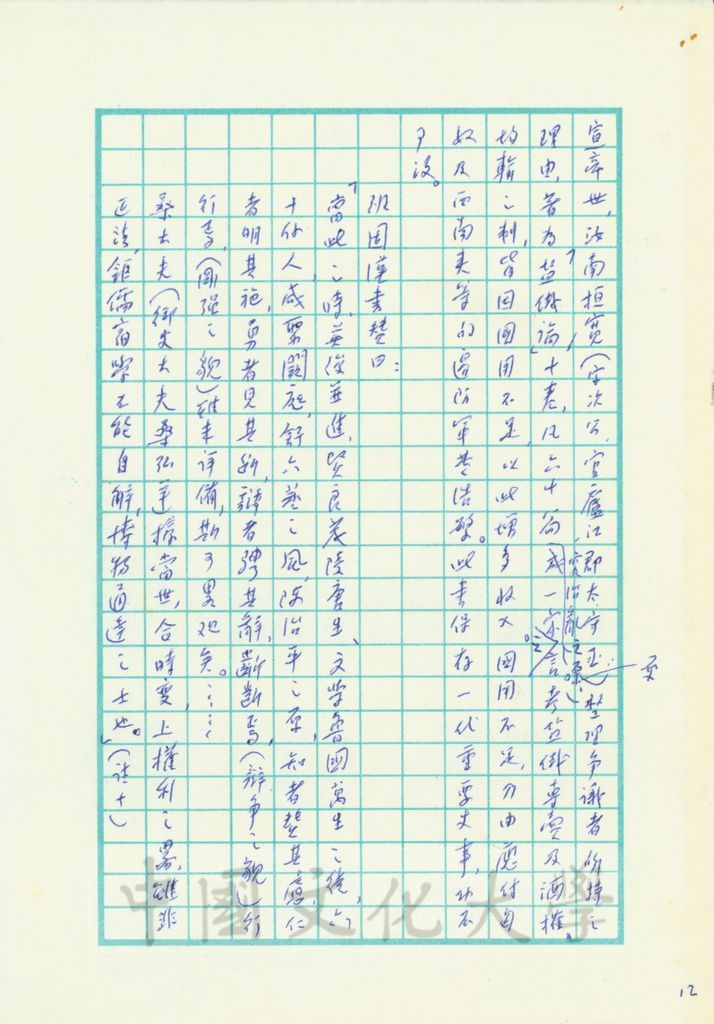 宣帝世，汝南桓寬（字次公，官廬江郡太守丞）整理爭議者的持之
理由，著為「鹽鐵論」十卷，凡六十篇，究治亂之原，成一家之言。考鹽鐵專賣及酒榷、
均輸之制，皆因國用不足，以此增多收入。國用不足，乃由應付匈
奴及西南夷等的邊防軍費浩繁。此書保存一代重要史事，功不
可沒。
班固漢書贊曰：
「當此之時，英俊並進，賢良茂陵唐生、文學魯國萬生之徒，六
十餘人，咸聚闕庭，舒六藝之風，陳治平之原，知者贊其慮，仁
者明其施，勇者見其斷，辯者騁其辭，齗齗焉，（辯爭之貌）行
行焉，（剛強之貌）雖未詳備，斯可略觀矣。……
桑大夫（御史大夫桑弘羊）據當世，合時變，上權利之略，雖非
正法，鉅儒宿學不能自解，博物通達之士也。」（註十）
要
中國文化大學
12